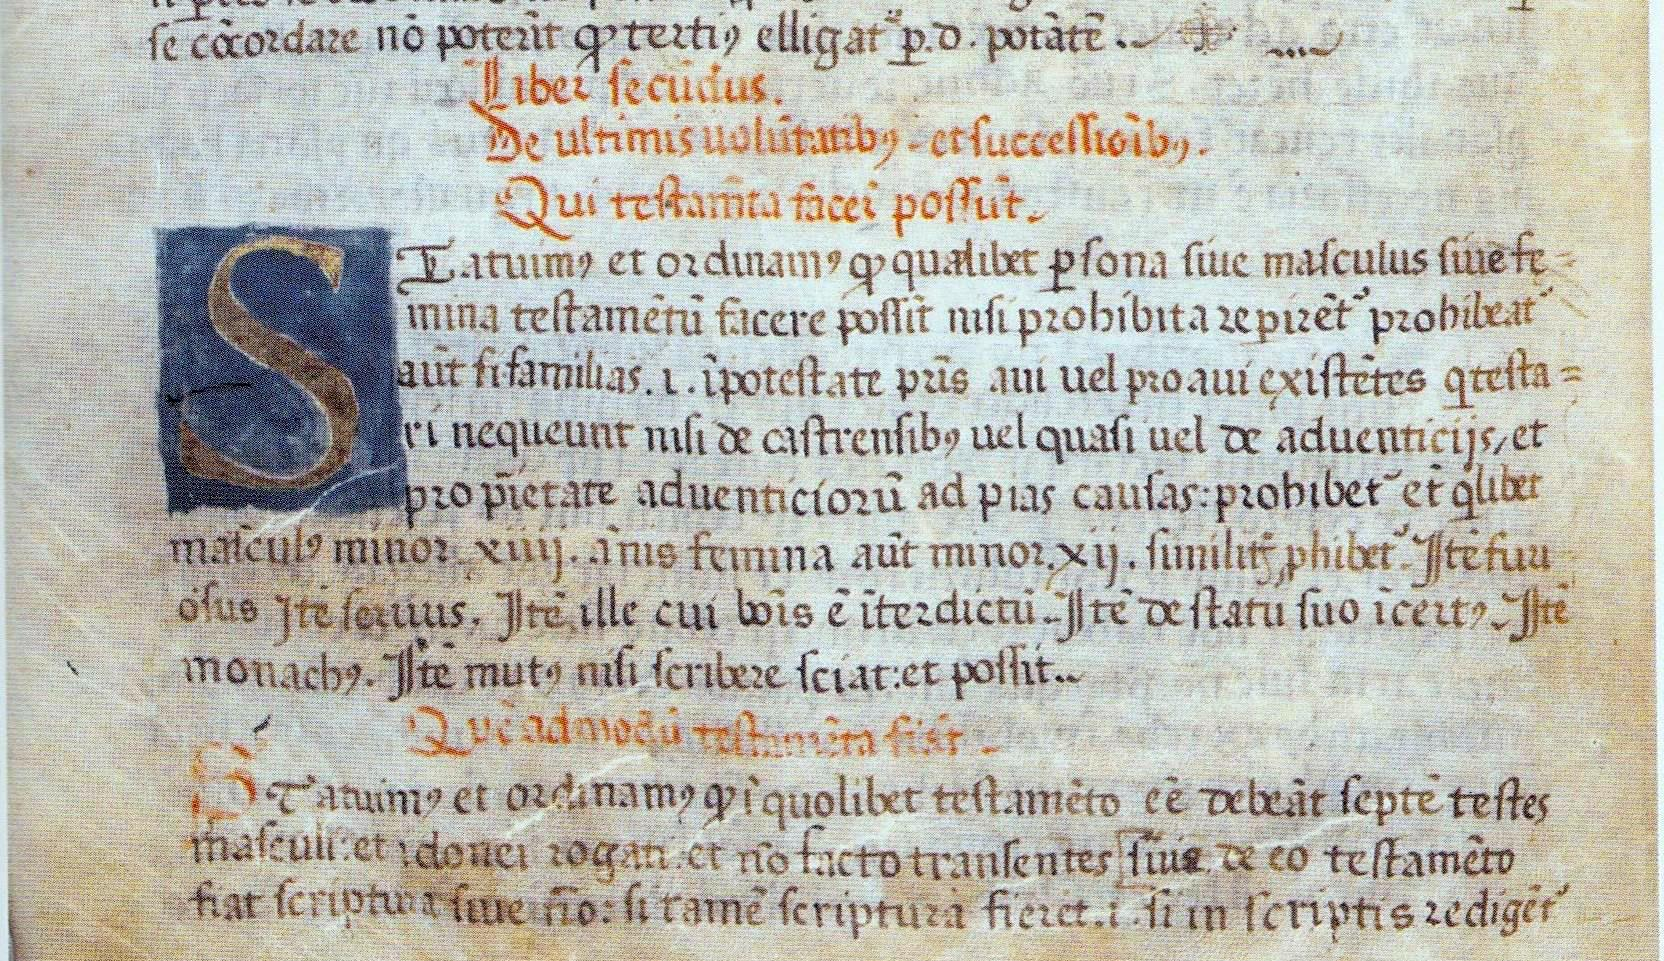 se cōcordare nō poterīt qꝫ tertiꝰ elligat᷑ ꝑ.d. potātē.
Liber secūdus.
De ultimis uolūtatibꝰ et successioībꝰ.
Qui testam̄ta facer̄ possūt.
STatuimꝰ et ordinamꝰ qꝫ qualibet ꝑsona siue masculus siue fe=
mina testamētū facere possit nisi prohibita repirēt᷑ prohibeat᷑
aūt fifamilias .i. īpotestate pr̄is aui uel proaui existētes q testa=
ri nequeunt nisi de castrensibꝰ uel quasi uel de aduenticijs, et
propīetate aduenticiorū ad pias causas: prohibet᷑ et̄ qlibet
masculꝰ minor .xiiij. ānis femina aūt minor .xij. similit᷑ ꝓhibet᷑. Itē furi
osus Itē seruus. Itē ille cui boīs ē īterdictū. Itē de statu suo īcertꝰ. Itē
monachꝰ. Itē mutꝰ nisi scribere sciat: et possit..
Quē admodū testamēta fiāt.
STatuimꝰ et ordinamꝰ qꝫ ī quolibet testamēto eē debeāt septē testes
masculi: et idonei rogati: et nō facto transentes siue de eo testamēto
fiat scriptura siue nō: si tamē scriptura fieret .i. si in scriptis redigēt᷑